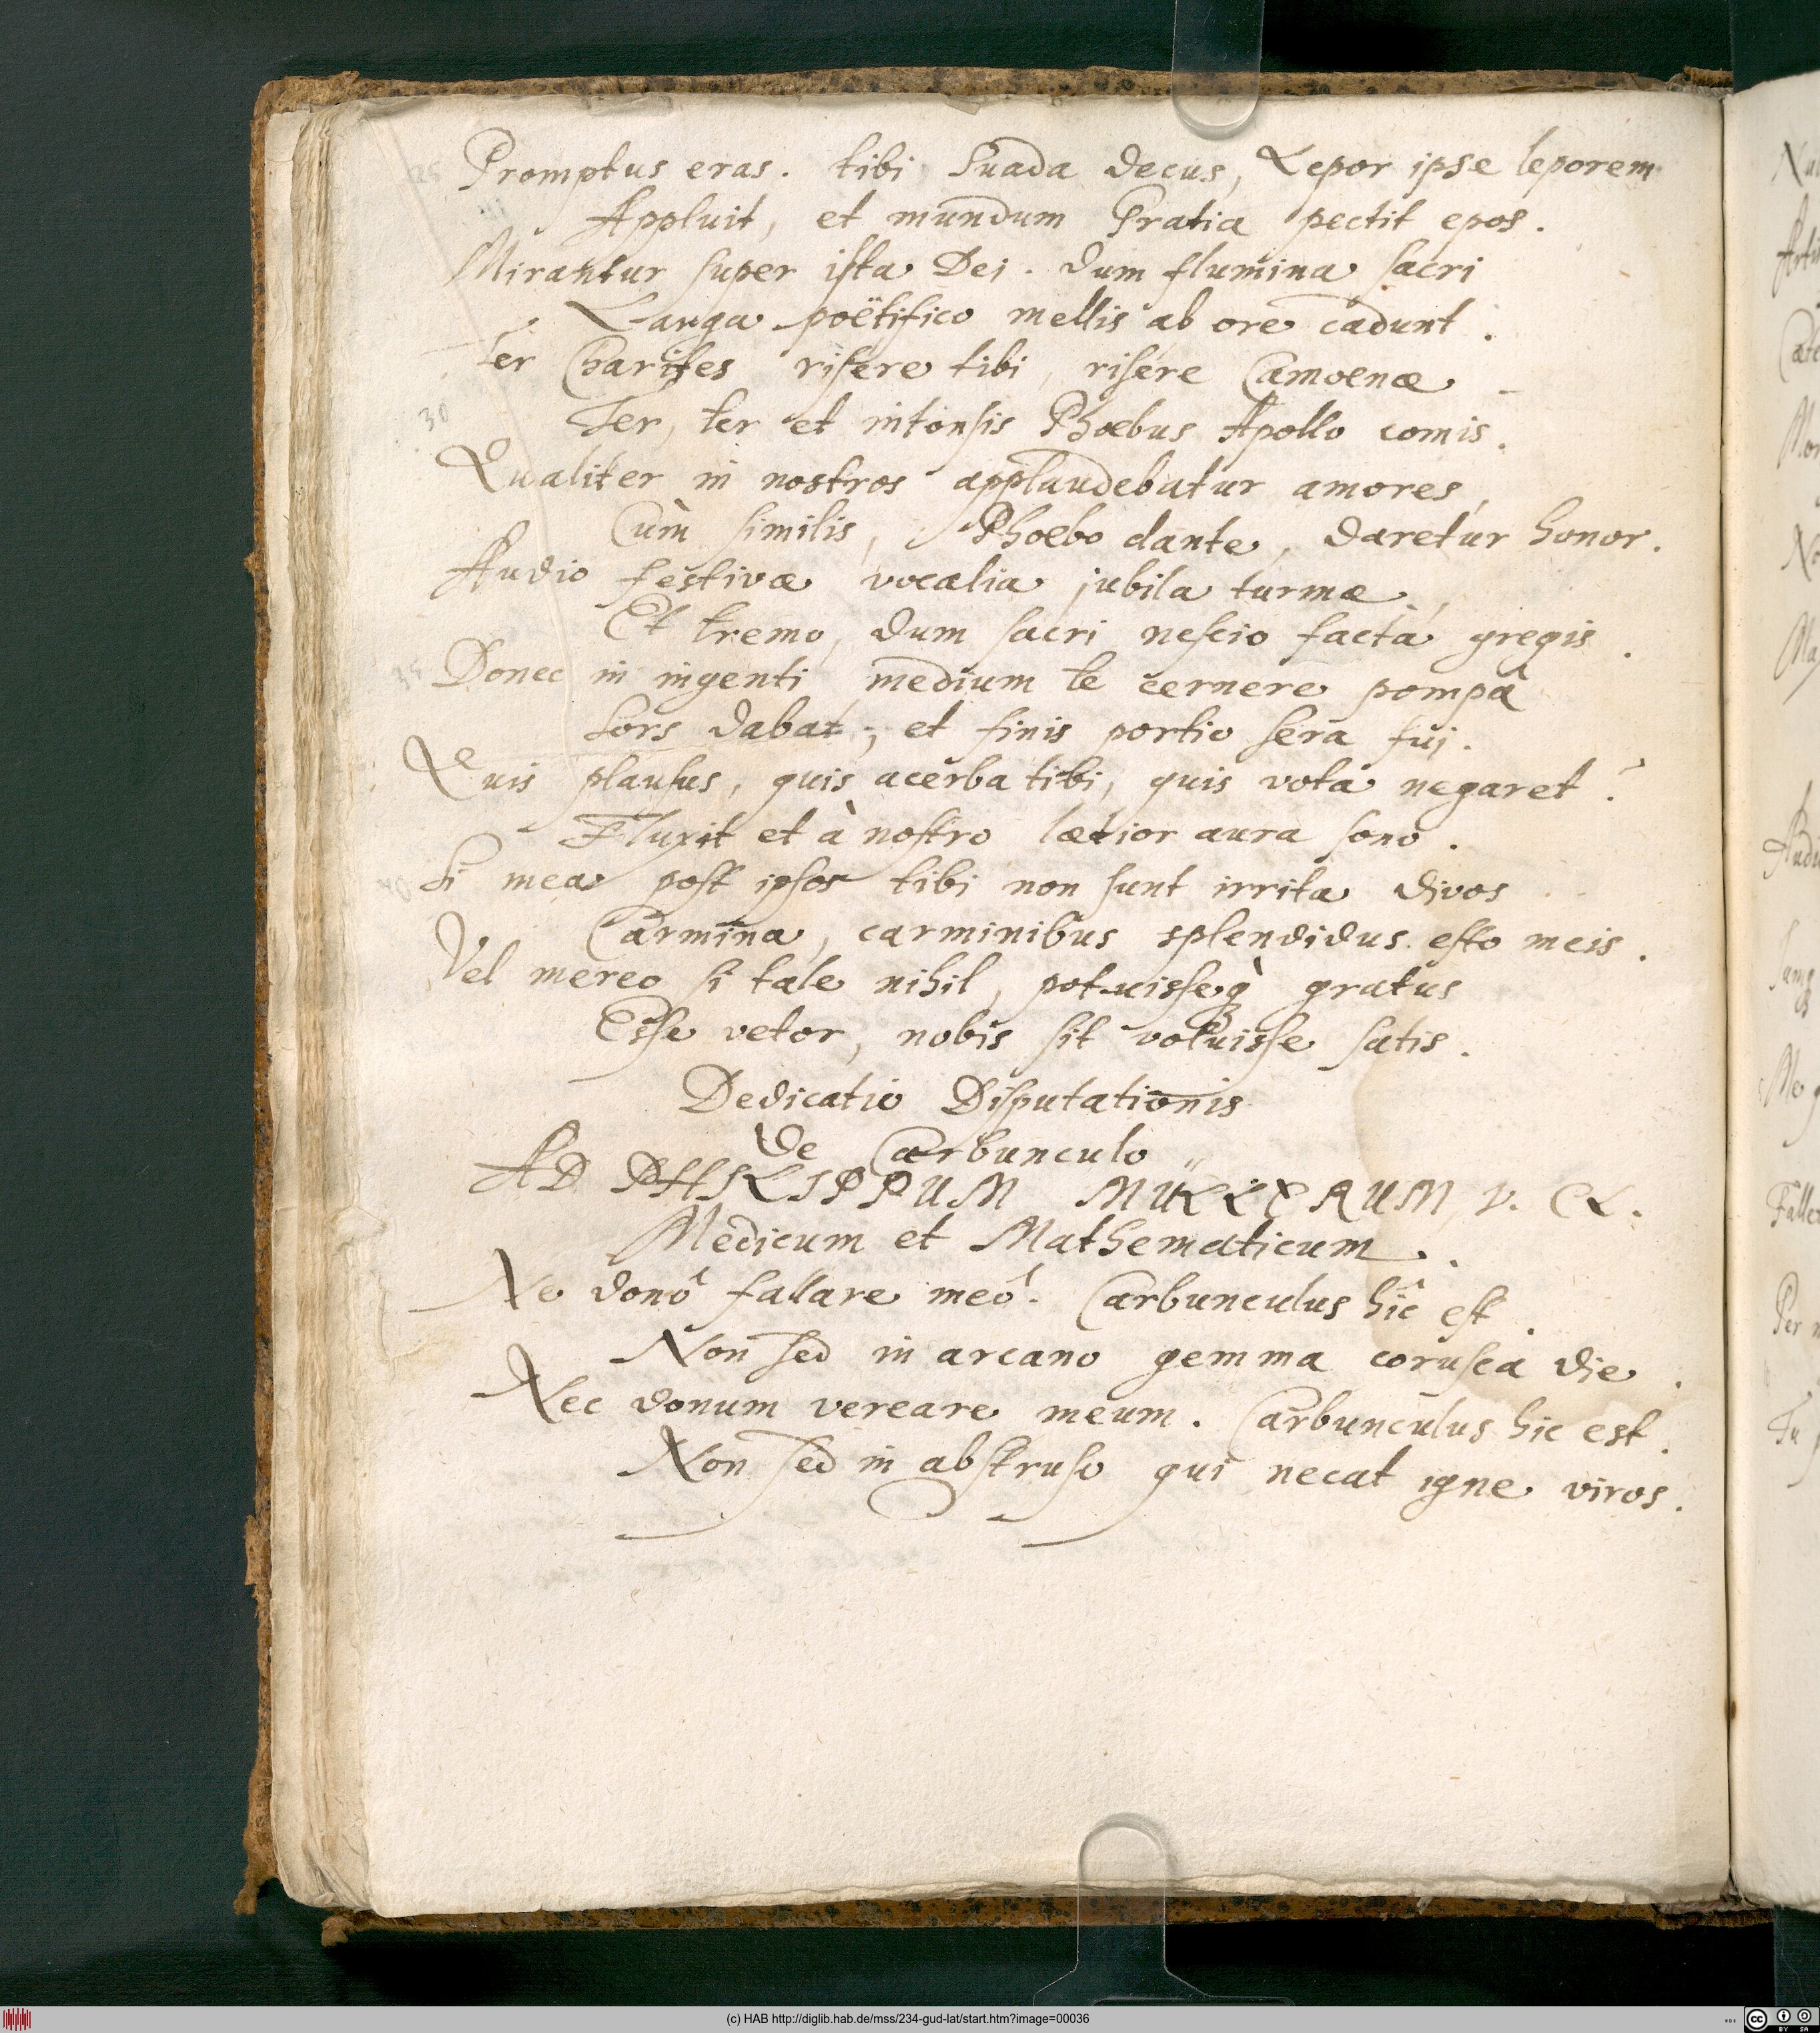 Promptus eras. tibi Suada decus, Lepor ipse leporem
Appluit, et mundum Gratia pectit epos.
Mirantur super ista Dei. dum flumina sacri
Larga poëtifico mellis ab ore cadunt.
Ter Charites risere tibi, risere Camoenæ
30
Ter, ter et intonsis Phœbus Apollo comis.
Qualiter in nostros applaudebatur amores,
Cùm similis, Phoebo dante, daretur honor.
Audio festivæ vocalia jubila turmæ,
Et tremo, dum sacri nescio facta gregis.
Donec in ingenti medium te cernere pompâ
Sors dabat; et finis portio sera fuj.
Quis plausus, quis acerba tibi, quis vota negaret?
Fluxit et à nostro lætior aura sono.
Si mea post ipsos tibi non sunt irrita divos
Carmina, carminibus splendidus esto meis.
Vel mereo si tale nihil, potuisseq̀ gratus
Esse vetor, nobis sit voluisse satis.
Dedicatio Disputationis
De Carbunculo
AD PHILIPPUM MÜLLERUM, V. CL.
Medicum et Mathematicum.
Ne donô fallare meô. Carbunculus hîc est.
Non sed in arcano gemma corusca die.
Nec donum vereare meum. Carbunculus hic est.
Non sed in abstruso qui necat igne viros.
(c) HAB http://diglib.hab.de/mss/234-gud-lat/start.htm?image=00036